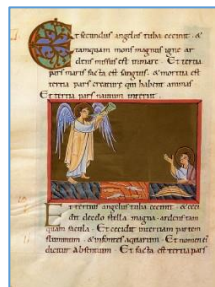 Et secundus angelus tuba cecinit. &
tamquam mons magnus igne ar
dens missus est in mare. Et tertia
pars maris facta est sanguis. & mortua est
tertia pars creaturę qui habent animas
Et tertia pars nauium interiit.
Et tertius angelus tuba cecinit. & ceci
dit de celo stella magna ardens tam
quam facula. Et cecidit in tertiam partem
fluminum. & in fontes aquarum. Et nomen
dicitur Absinthium. Et facta est tertia pars